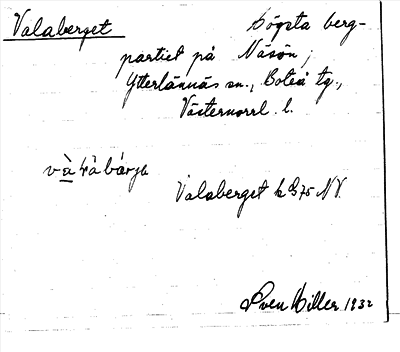 Valaberget högsta berg-
partiet på Näsön;
Ytterlännäs sn., Boteå tg.,
Västernorrl. l.
Valaberget k 975 NV.
Sven Hiller 1932